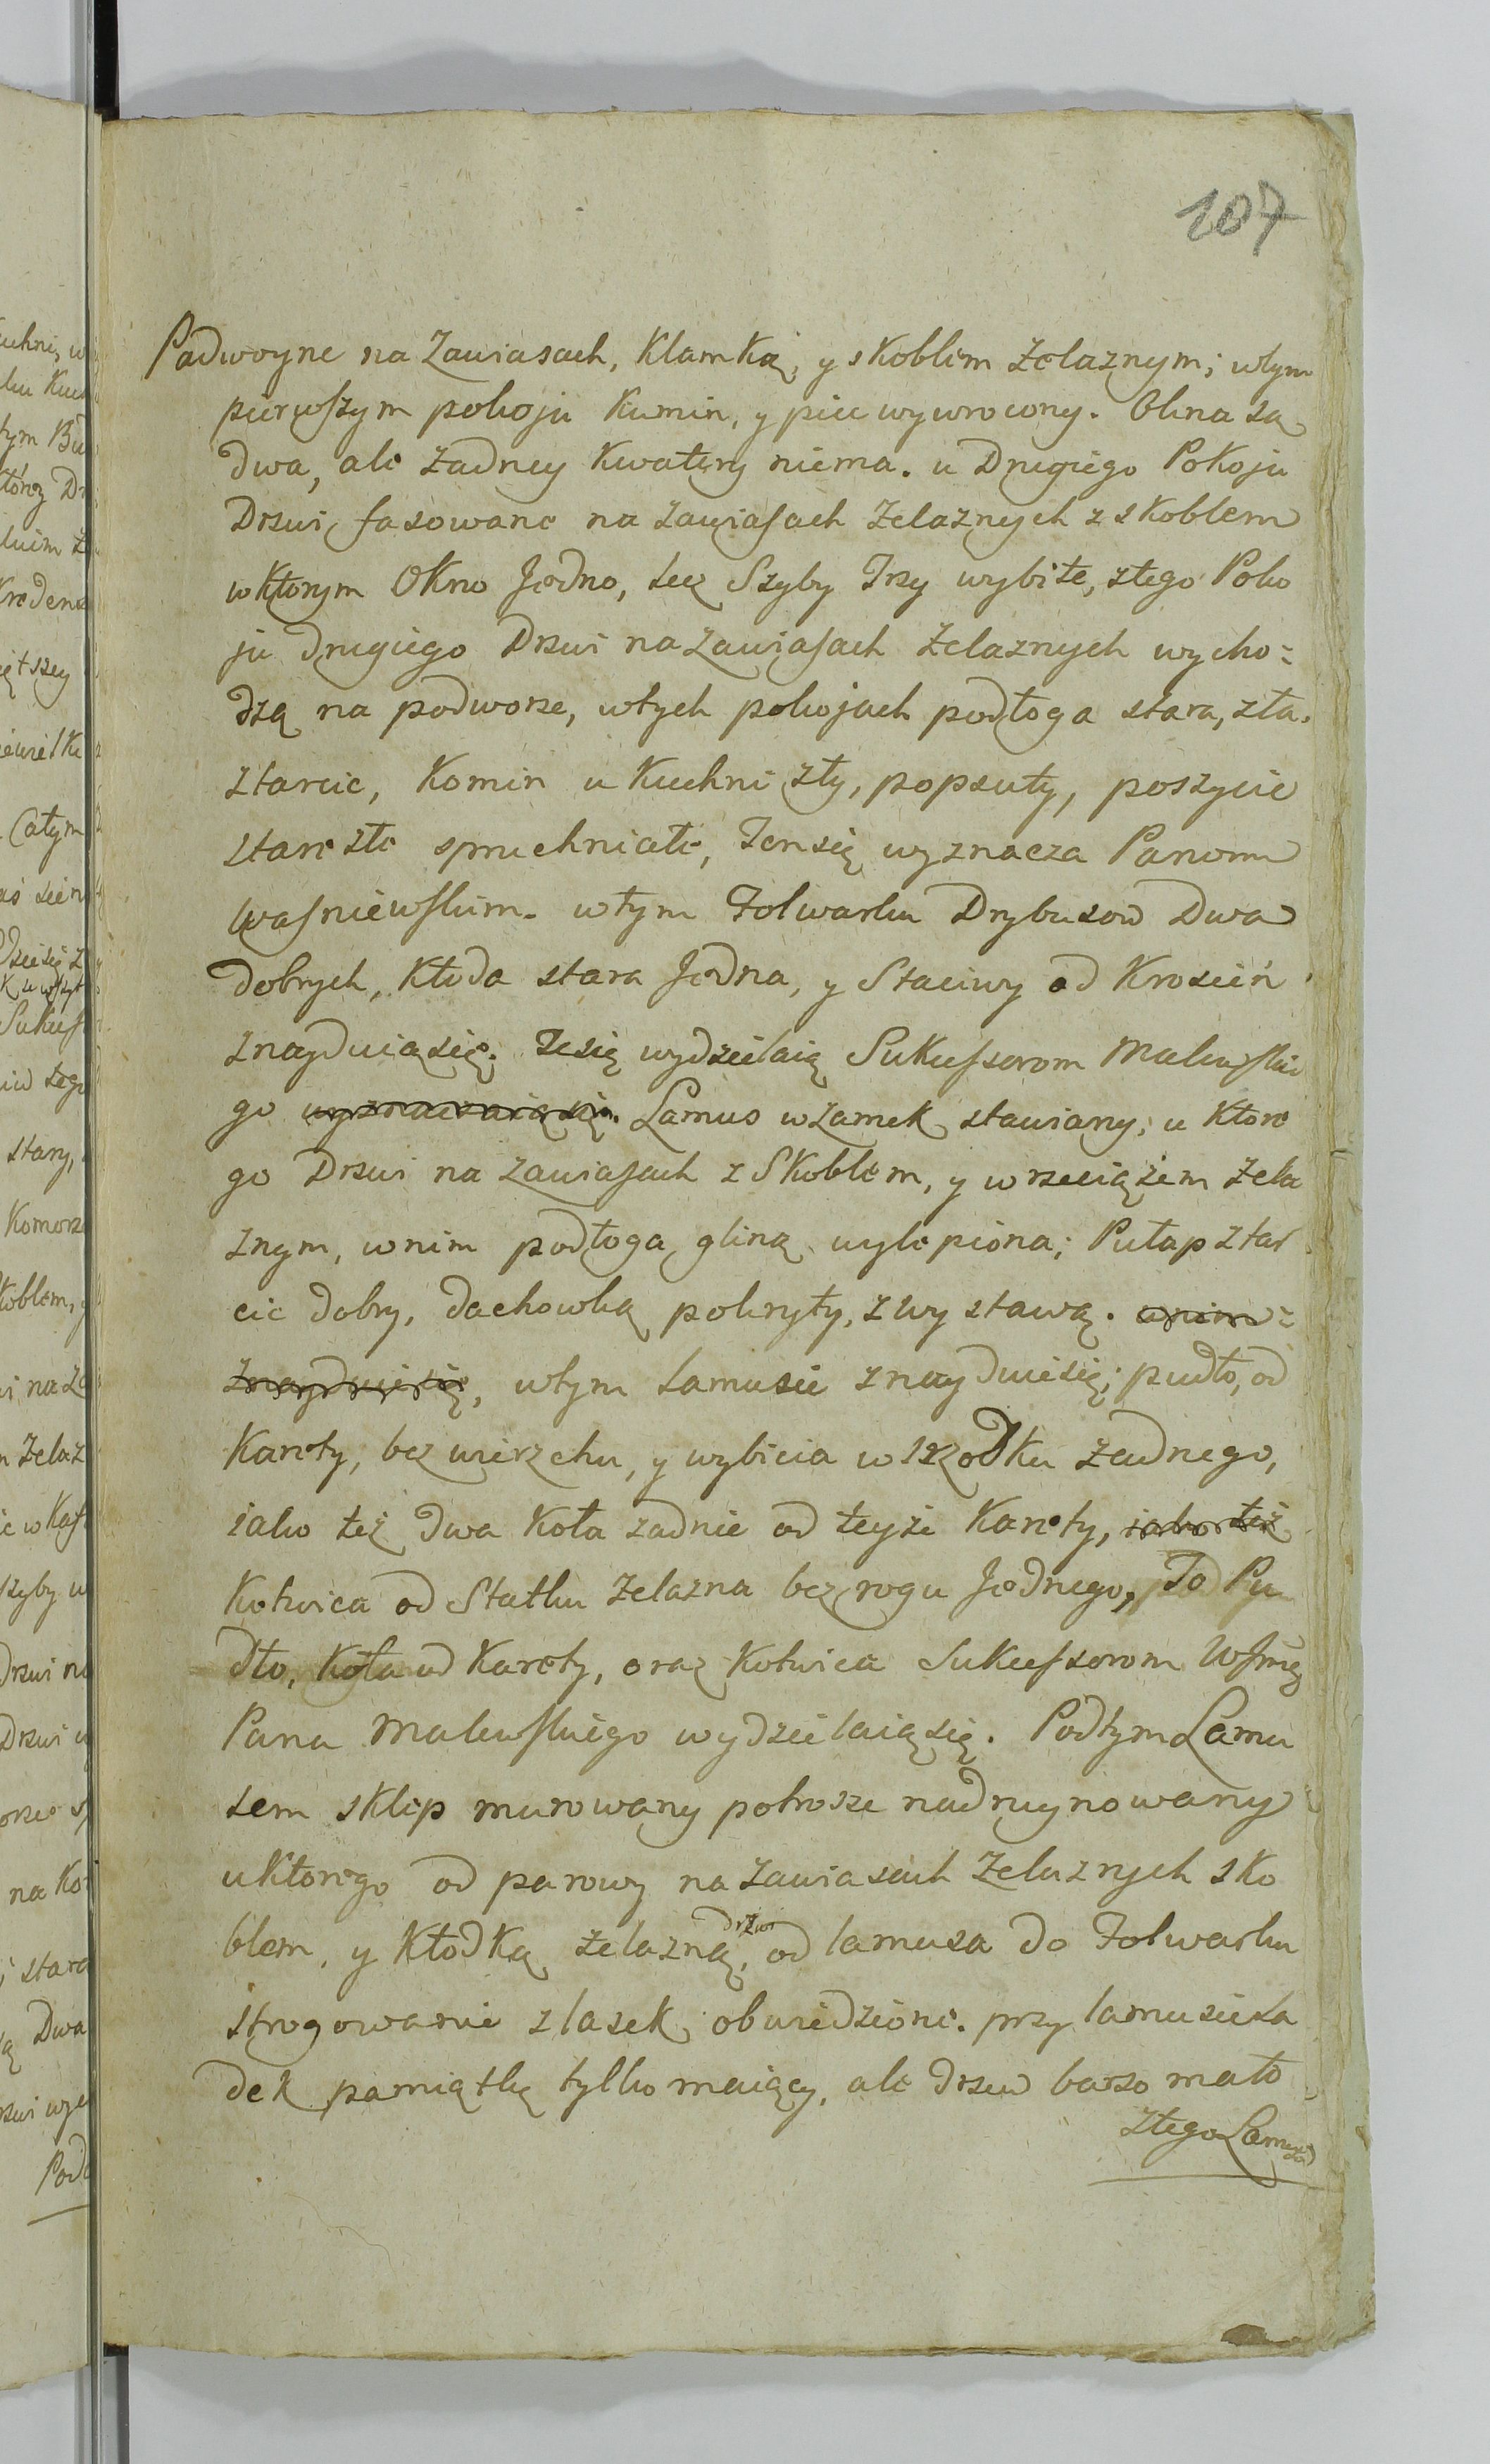 107
Padwoyne na Zawiasach, Klamką, y skoblem Zelaznym; wtym
pierwszym pokoju Kumin, y piec wywrocony. Okna są
dwa, ale Zadney Kwatery niema. u Drugiego Pokoju
Drzwi fasowane na zawiasach Zelaznych z skoblem
wktorym Okno Jedno, lecz Szyby Trzy wybite, ztego Poko
ju drugiego Drzwi na zawiasach Zelaznych wycho=
dzą na podworze, wtych pokojach podłoga stara, zła.
ztarcic, Komin u Kuchni zły, popsuty, poszycie
stare złe spruchniałe, Ten się wyznacza Panom
Wasniewskim. wtym Folwarku Drybusow Dwa
dobrych, Kłoda stara Jedna, y Staciwy od Krosień
znayduią się; Te się wydzielaią Sukcessorom Malewskie
go wyznaczaią się. Lamus wzamek stawiany, u Ktore
go Drzwi na zawiasach z Skoblem, y wrzeciążem Żela
znym, wnim podłoga gliną wylepiona; Pułap ztar
cic dobry, dachowką pokryty, z wystawą. wnim=
znayduie się, wtym Lamusie znayduie się; pudło, od
Karety, bez wierzchu, y wybicia w srzodku żadnego,
iako też dwa Koła zadnie od teyże Karety, iako też
Kotwica od Statku Zelazna bez rogu Jednego, To Pu
dło, Koła od Karety, oraz Kotwica Sukcessorom
Pana Malewskiego wydzielaią się. Podtym Lamu
sem sklep murowany potrosze nadruynowany
u Ktorego od parowy na zawiasach Zelaznych sko
blem, y Kłodką żelazną, drzwi od lamusa do Folwarku
strogowanie z lasek obwiedzione. przy lamusie Sa
dek pamiątkę tylko maiący, ale drzew barzo mało
ztego Lamusa